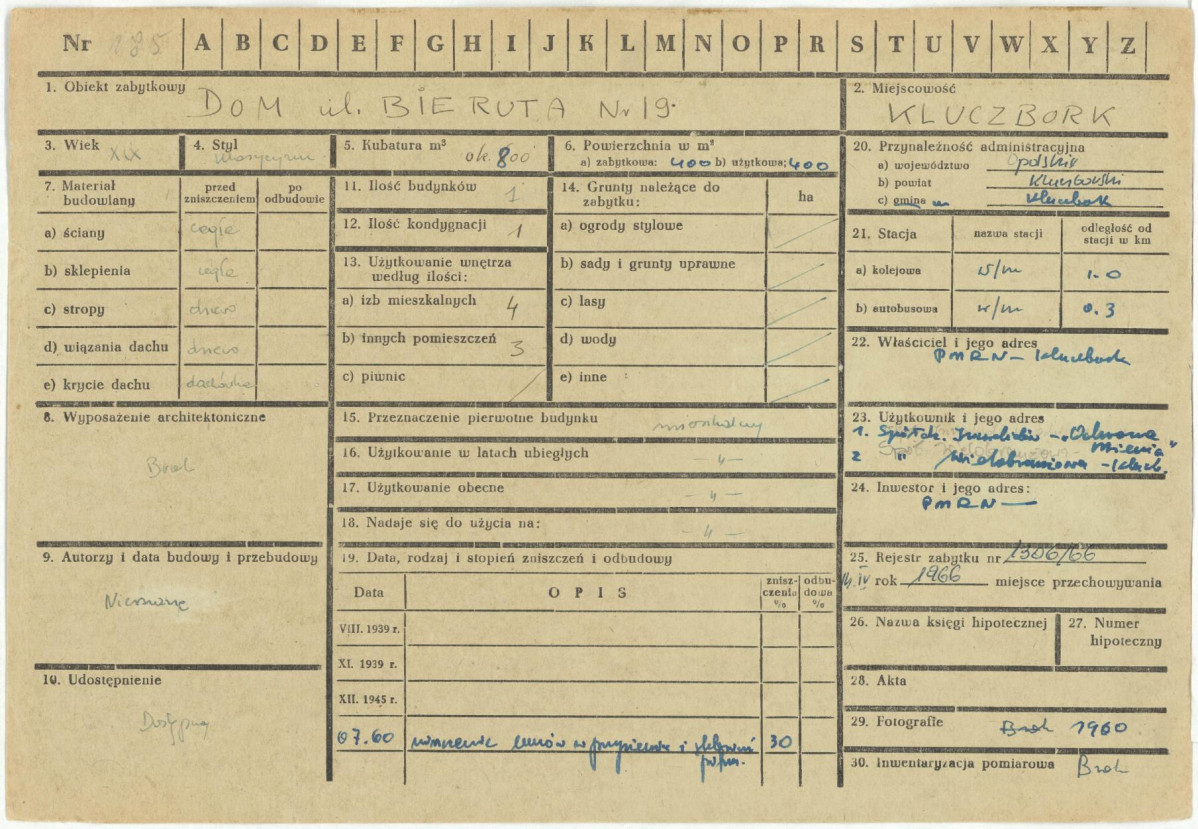 Nr 185 A B C D E F G H I J K L M N O P R S T U V W X Y Z
1. Obiekt zabytkowy DOM ul. BIERUTA Nr 19.
2. Miejscowość KLUCZBORK
3. Wiek XIX
4. Styl
5. Kubatura m³ ok. 800
6. Powierzchnia w m²
a) zabytkowa: 400 b) użytkowa: 400
7. Materiał budowlany
przed zniszczeniem
po odbudowie
a) ściany cegła
b) sklepienia cegła
c) stropy drewo
d) wiązania dachu drewo
e) krycie dachu dachówka
8. Wyposażenie architektoniczne
Brak
9. Autorzy i data budowy i przebudowy
Nieznane
10. Udostępnienie
Dostępny
11. Ilość budynków 1
12. Ilość kondygnacji 1
13. Użytkowanie wnętrza według ilości:
a) izb mieszkalnych 4
b) innych pomieszczeń 3
c) piwnic /
14. Grunty należące do zabytku:
ha
a) ogrody stylowe
b) sady i grunty uprawne
c) lasy
d) wody
e) inne
15. Przeznaczenie pierwotne budynku mieszkalny
16. Użytkowanie w latach ubiegłych - " -
17. Użytkowanie obecne - " -
18. Nadaje się do użycia na: - " -
19. Data, rodzaj i stopień zniszczeń i odbudowy
Data
OPIS
zniszczenia %
odbudowa %
VIII. 1939 r.
XI. 1939 r.
XII. 1945 r.
07.60 i 30
20. Przynależność administracyjna
a) województwo Opolskie
b) powiat Kluczborski
c) gmina m Kluczbork
21. Stacja
nazwa stacji
odległość od stacji w km
a) kolejowa w/m 1.0
b) autobusowa w/m 0.3
22. Właściciel i jego adres
PMRN - Kluczbork
23. Użytkownik i jego adres
1. Spółdz. Inwalidów - "Ochrona Mienia"
2 " Wielobranżowa - Klucz.
24. Inwestor i jego adres:
PMRN —
25. Rejestr zabytku nr 1306/66
14.IV rok 1966 miejsce przechowywania
26. Nazwa księgi hipotecznej
27. Numer hipoteczny
28. Akta
29. Fotografie Brak 1960
30. Inwentaryzacja pomiarowa Brak